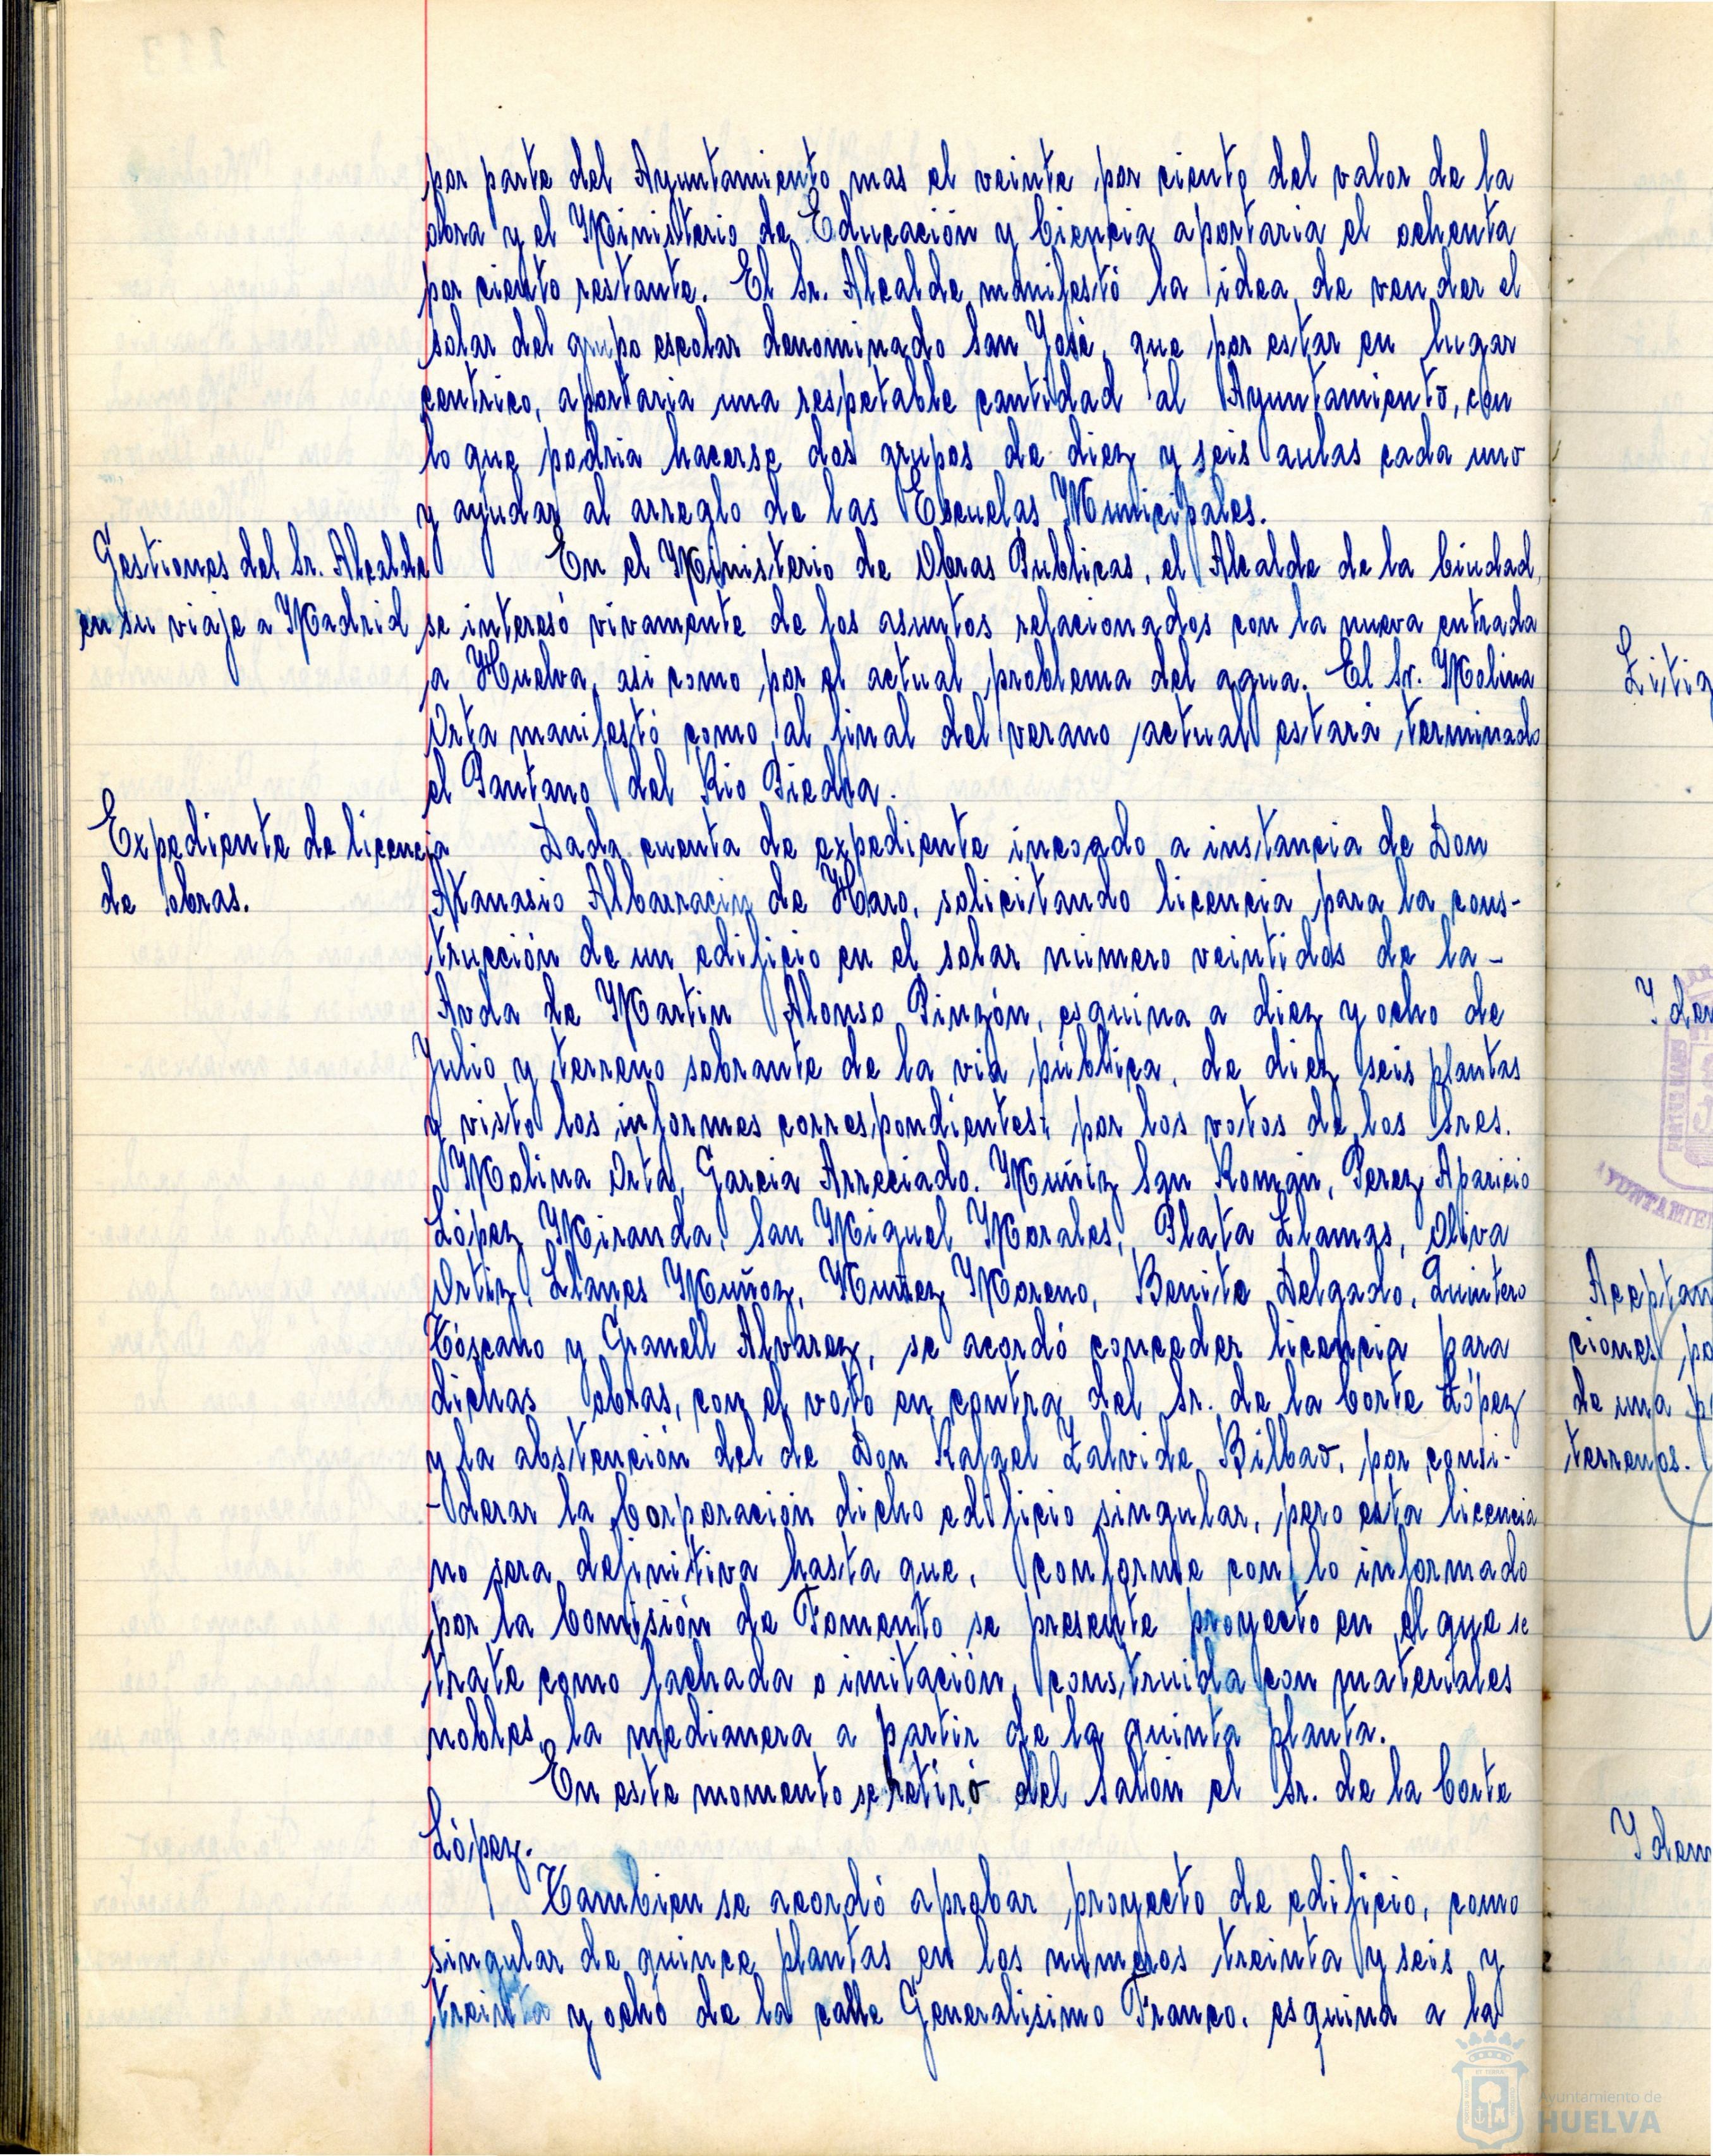 por parte del Ayuntamiento mas el veinte por ciento del valor de la
obra y el Ministerio de Educación y Ciencia aportaria el ochenta
por ciento restante. El Sr. Alcalde manifestó la idea de vender el
solar del grupo escolar denominado San José, que por estar en lugar
centrico, aportaria una respetable cantidad al Ayuntamiento, con
lo que podria hacerse dos grupos de diez y seis aulas cada uno
y ayudar al arreglo de las Escuelas Municipales.
Gestiones del Sr. Alcalde
en su viaje a Madrid
En el Ministerio de Obras Publicas, el Alcalde de la Ciudad,
se interesó vivamente de los asuntos relacionados con la nueva entrada
a Huelva, asi como por el actual problema del agua. El Sr. Molina
Orta manifestó como al final del verano actual estará terminado
el Pantano del Rio Piedra.
Expediente de licencia
de obras.
Dada cuenta de expediente incoado a instancia de Don
Atanasio Albarracin de Haro, solicitando licencia para la cons-
trucción de un edificio en el solar numero veintidos de la -
Avda de Martin Alonso Pinzón, esquina a diez y ocho de
Julio y terreno sobrante de la via pública, de diez seis plantas
y visto los informes correspondientes; por los votos de los Sres.
Molina Orta, Garcia Arreciado. Muñiz San Román, Perez Aparicio
López Miranda, San Miguel Morales, Plata Llamas, Oliva
Ortiz, Llanes Muñoz, Nuñez Moreno, Benite Delgado, Quintero
Toscano y Granell Alvarez, se acordó conceder licencia para
dichas obras, con el voto en contra del Sr. de la Corte López
y la abstención del de Don Rafael Zalvide Bilbao, por consi-
-derar la Corporación dicho edificio singular, pero esta licencia
no sera definitiva hasta que, conforme con lo informado
por la Comisión de Fomento se presente proyecto en el que se
trate como fachada o imitación, construida con materiales
nobles, la medianera a partir de la quinta planta.
En este momento se retiró del Salón el Sr. de la Corte
López.
Tambien se acordó aprobar proyecto de edificio, como
singular de quince plantas en los numeros treinta y seis y
treinta y ocho de la calle Generalisimo Franco, esquina a la
Idem
de una
terrenos.
Idem
Ayuntamiento de
HUELVA